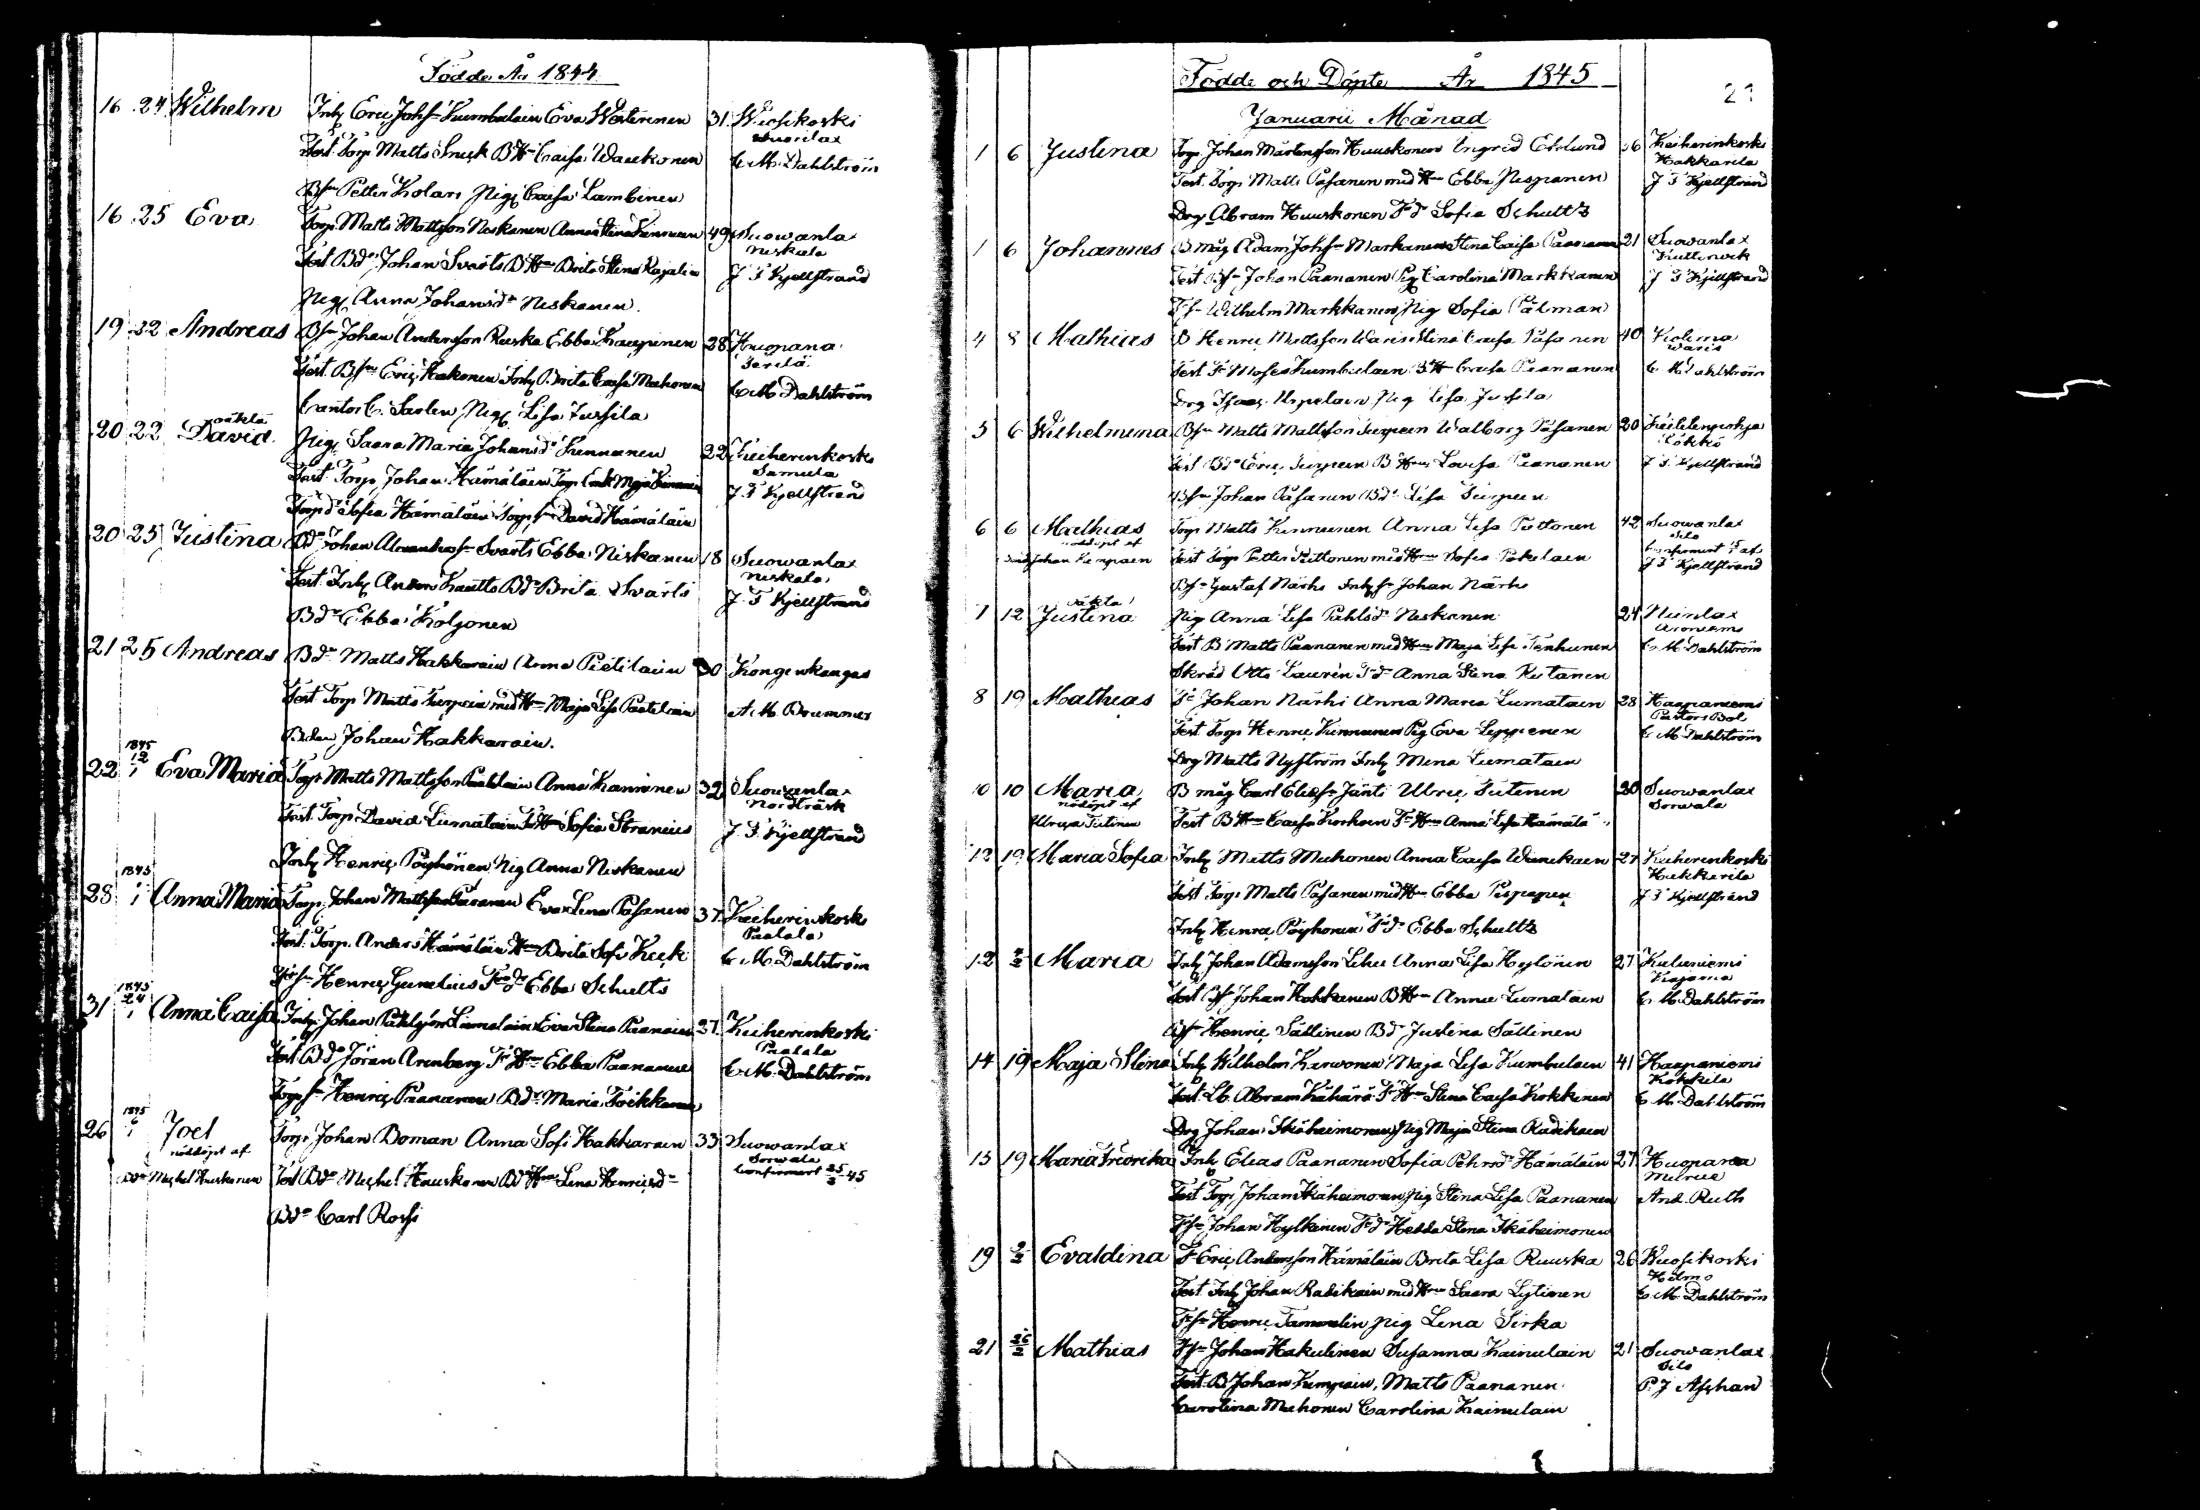 Födde År 1844
16 24 Wilhelm Inh Eric Johsn Kumbulain Eva Westerinen 31 Wiosikoski
Suovilax
Test. Torp Matts Snick BHn Caisa Wauhkonen C M Dahlström
Bsn Petter Kolari Pig Caisa Lambinen
16 25 Eva Torp. Matts Mattsson Niskanen Anna Stina Kinnunen 49 Suowanlax
Niskala
Test Bdn Johan Svarts BHn Brita Stina Kajalin J F Kjellstrand
Pig. Anna Johansdr Niskanen.
19 22 Andreas Bsn Johan Andersson Ruska Ebba Kaupinen 28 Huopana
Test. Bsn Eric Hakonen Inh Brita Caisa Mechonen C M Dahlström
Cantor C. Sarlen Pig Lisa Jussila
oäkta
20 22 David. Pig. Saara Maria Johansdr Kinnunen 22 Keiherinkoski
Samula
Test Torp Johan Hämäläin J F Kjellstrand
Torpdr Sofia Hämäläin Torpsn David Hämäläin
20 25 Justina Bdn Johan Svarts Ebba Niskanen 18 Suowanlax
Niskala
Test Inh Anders Kautto Bdn Brita Svarts J F Kjellstrand
Bdn Ebba Koljonen
21 25 Andreas Bdn Matts Hakkarain Anna Pietiläin 30 Konginkangas
Test Torp Matts Turpein med Hn Maja Lisa A M Brummer
Bdn Johan Hakkarain.
1845
22 12/1 Eva Maria Torp Matts Mattsson Anna Kaninen 32 Suowanlax
Nordträsk
Test Torp David Liimatain FHn Sofia Stranius J F Kjellstrand
Inh Henric Pöyhönen Pig Anna Niskanen
1845
28 Anna Maria Torp. Johan Mattsson Pasanen Eva Lena Pasanen 37 Keiherinkoski
Paalala
Test. Torp. Anders Hämäläin Hn Brita Sofi Kiek C M Dahlström
Henric Gumelius Fdr Ebba Schults
1845
31 24/1 Anna Caisa Inh Johan Påhlsson Liimatain Eva Stina Paananen 27 Keiherinkoski
Paalala
Test Bdn Jöran Arenberg FHn Ebba Paananen C M Dahlström
Torpsn Henric Paananen Bdr Maria Toikkanen
1845
26 6/1 Joel Torp Johan Boman Anna Sofi Hakkarain 33 Suowanlax
nöddöpt af Sorwala
Bdn Michel Huuskonen Test Bdn Michel Huuskonen BdHn Lena Henricsdr Confirmert 25/3 45
Bdn Carl Rossi
Födde och Döpte År 1845
Januarii Månad
1 6 Justina Torp. Johan Mårtensson Huuskonen Ingrid Eklund 36 Keiherinkoski
Hakkarila
Test. Torp Matts Pasanen med Hn Ebba Pespanen J F Kjellstrand
Drg Abram Huuskonen Fdr Sofia Schultz
1 6 Johannes B måg Adam Johsn Markkanen Stina Caisa Paananen 21 Suowanlax
Test Bsn Johan Paananen Pig Carolina Markkanen J F Kjellstrand
Fsn Wilhelm Markkanen Pig Sofia Pålman
4 8 Mathias B Henric Mattsson Waris Stina Caisa Pasanen 40 Kolima
Waris
Test F Moses Kumbulaen BHn Caisa Paananen C M Dahlström
Drg Isaac Urpelain Pig Lisa Jussila
5 6 Wilhelmina Bsn Matts Mattsson Turpein Walborg Pasanen 20
Test Bdn Eric Turpein BHn Lovisa Paananen J F Kjellstrand
Bsn Johan Pasanen Bdr Lisa Turpein
6 6 Mathias Torp Matts Kinnunen Anna Lisa Piittonen 42 Suowanlax
nöddöpt af Silo
Johan Kempaen Test Torp Petter Piittonen med Hn Sofia Pekelaen J F Kjellstrand
Bsn Gustaf Närhi Inhsn Johan Närhi
oäkta
7 12 Justina Pig Anna Lisa Påhlsdr Niskanen 24 Niinilax
Test B Matts Paananen med Hn Maja Lisa Tenhunen C M Dahlström
Skräd Otto Laurén Fdr Anna Stina Kutanen
8 19 Mathias Johan Närhi Anna Maria Liimatain 28 Haapaniemi
Pastors Bol
Test Torp Henric Kinnunen Pig Eva Leppänen C M Dahlström
Drg Matts Nyström Inh Mina Liimatain
10 10 Maria B måg Carl Eliasn Jänti Ulric Tiitinen 20 Suowanlax
nöddöpt af Sorwala
Ulrica Tiitinen Test BHn Caisa Korhoen FHn Anna Lisa Hämälä
12 19 Maria Sofia Inh Matts Mechonen Anna Caisa 27 Keiherinkoski
Hakkarila
Test Torp Matts Pasanen med Hn Ebba Pespanen J F Kjellstrand
Inh Henric Pöyhönen Fdr Ebba Schultz
12 Maria Inh Johan Adamsson Leku Anna Lisa Hytönen 27 Kuluniemi
Test Bsn Johan Hakkanen BHn Anna Liimatain C M Dahlström
Bsn Henric Sällinen Bdr Justina Sällinen
14 19 Maja Stina Inh Wilhelm Karwonen Maja Lisa Kumbulaen 41 Haapaniemi
Kokkila
Test Lb Abram Kähärä FHn Stina Caisa Kokkinen C M Dahlström
Drg Johan Ikäheimonen Pig Maja Stina Radikaen
15 19 Maria Fredrika Inh Elias Paananen Sofia Pehrsdr Hämäläin 27 Huopana
Test Torp Johan Ikäheimonen Pig Stina Lisa Paananen And. Ruth
Fsn Johan Hytkinen Fdr Hedda Stina Ikäheimonen
19 2/2 Evaldina F Eric Andersson Hämäläin Brita Lisa Ruuska 26 Wiosikoski
Hilmo
Test Inh Johan Radikain med Hn Saara Lytinen C M Dahlström
Fsn Henric Tammelin Pig Lena Sirka
21 Mathias Fsn Johan Hakulinen Susanna Kainulain 21 Suowanlax
Silo
Test B Johan Kempain, Matts Paananen P J Aschan
Carolina Mechonen Carolina Kainulain